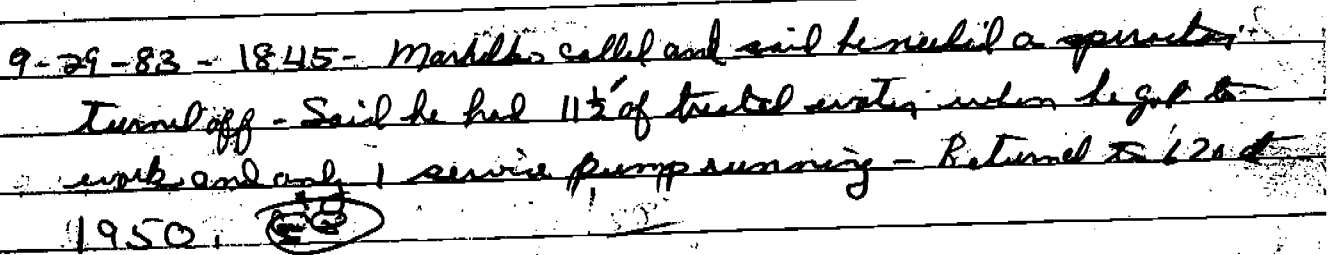 9-29-83 - 1845 - called and said he needed a
turned off - Said he had 11½' of treated water when he got to
work and only 1 service pump running - Returned to at
1950.